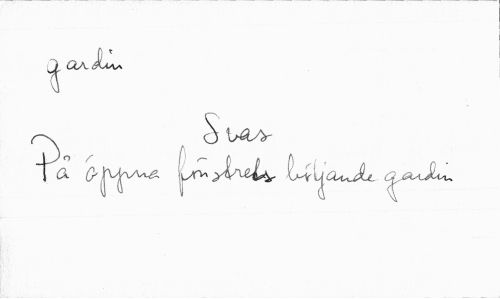 gardin
Svas
På öppna fönstrets böljande gardin